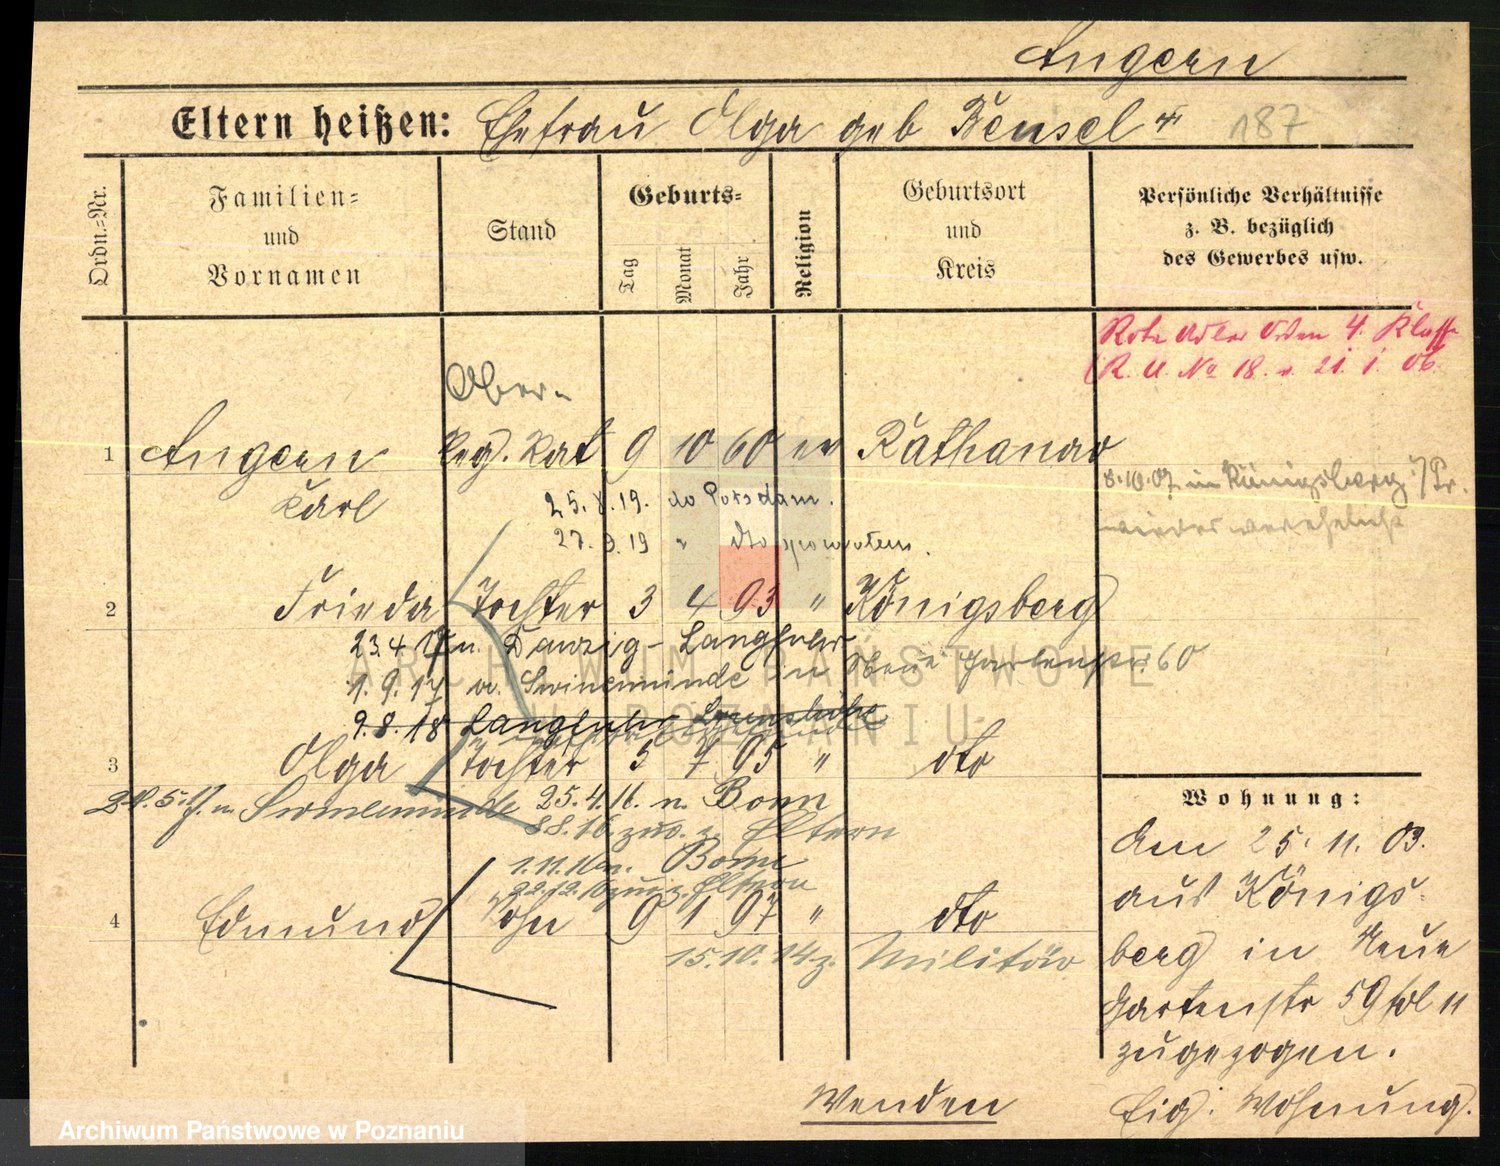 Angern
Eltern heißen: Ehefrau Olga geb Bensel
187
Ordn.-Nr.
Familien-
und
Vornamen
Stand
Geburts-
Tag
Monat
Jahr
Religion
Geburtsort
und
Kreis
Persönliche Verhältnisse
z. B. bezüglich
des Gewerbes usw.
Rote Adler Orden 4. Klasse
(R. U. No 18. v. 21. 1. 06.
Ober-
1 Angern Reg. Rat 9 10 60 ev Rathenow
Karl
8.10.07 in Königsberg i/Pr.
wieder verehelicht
25.8.19. do Potsdam.
27.9.19 " dto
2 Frieda Tochter 3 4 93 " Königsberg
23.4.17 n. Danzig-Langfuhr
1.9.17 v. Swinemünde in Neue Gartenstr. 60
9.8.18 Langfuhr
3 Olga Tochter 5 7 95 " dto
24.5.17. n. Swinemünde 25.4.16. n. Bonn
8.8.16. zur. z. Eltern
1.11.16 n. Bonn
22.12.16 zur. z. Eltern
4 Edmund Sohn 9 1 97 " dto
15.10.14 z. Militär
Wohnung:
Am 25. 11. 03.
aus Königs-
berg in Neue
Gartenstr 59 II
zugezogen.
Eig. Wohnung.
Wenden
ARCHIWUM PAŃSTWOWE
W POZNANIU
Archiwum Państwowe w Poznaniu